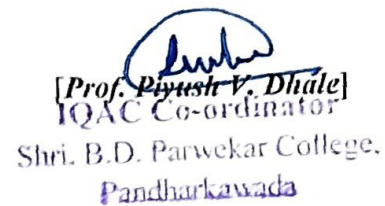 [Prof. Piyush V. Dhale]
IQAC Co-ordinator
Shri. B.D. Parwekar College,
Pandharkawada